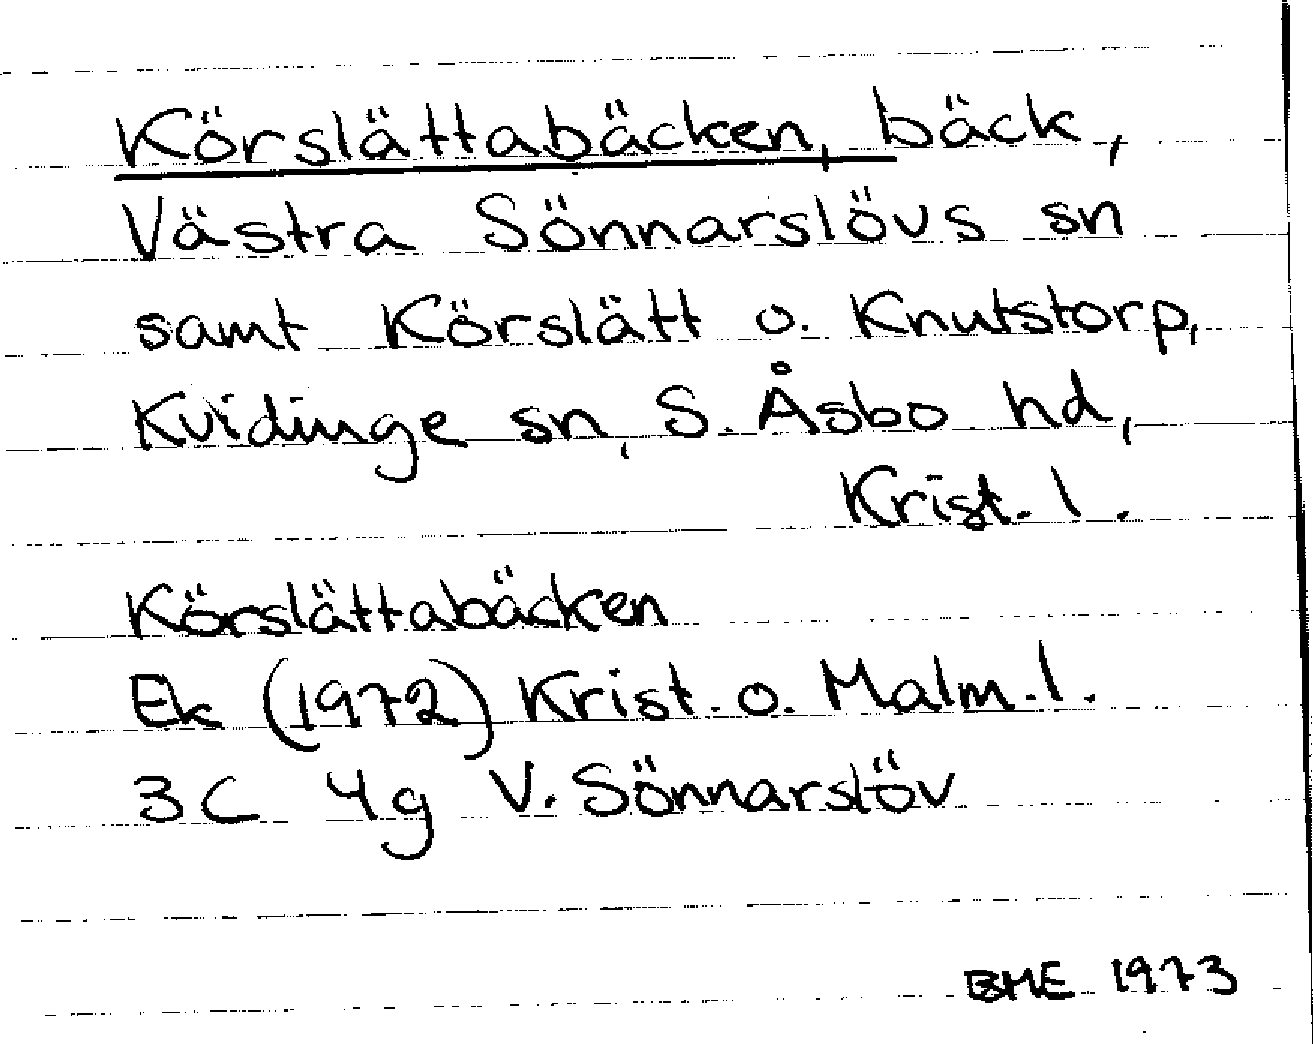 Körslättabäcken, bäck,
Västra Sönnarslövs sn
samt Körslätt o. Knutstorp,
Kvidinge sn, S. Åsbo hd,
Krist. l.
Körslättabäcken
Ek (1972) Krist. o. Malm. l.
3C 4g V. Sönnarslöv
BME 1973